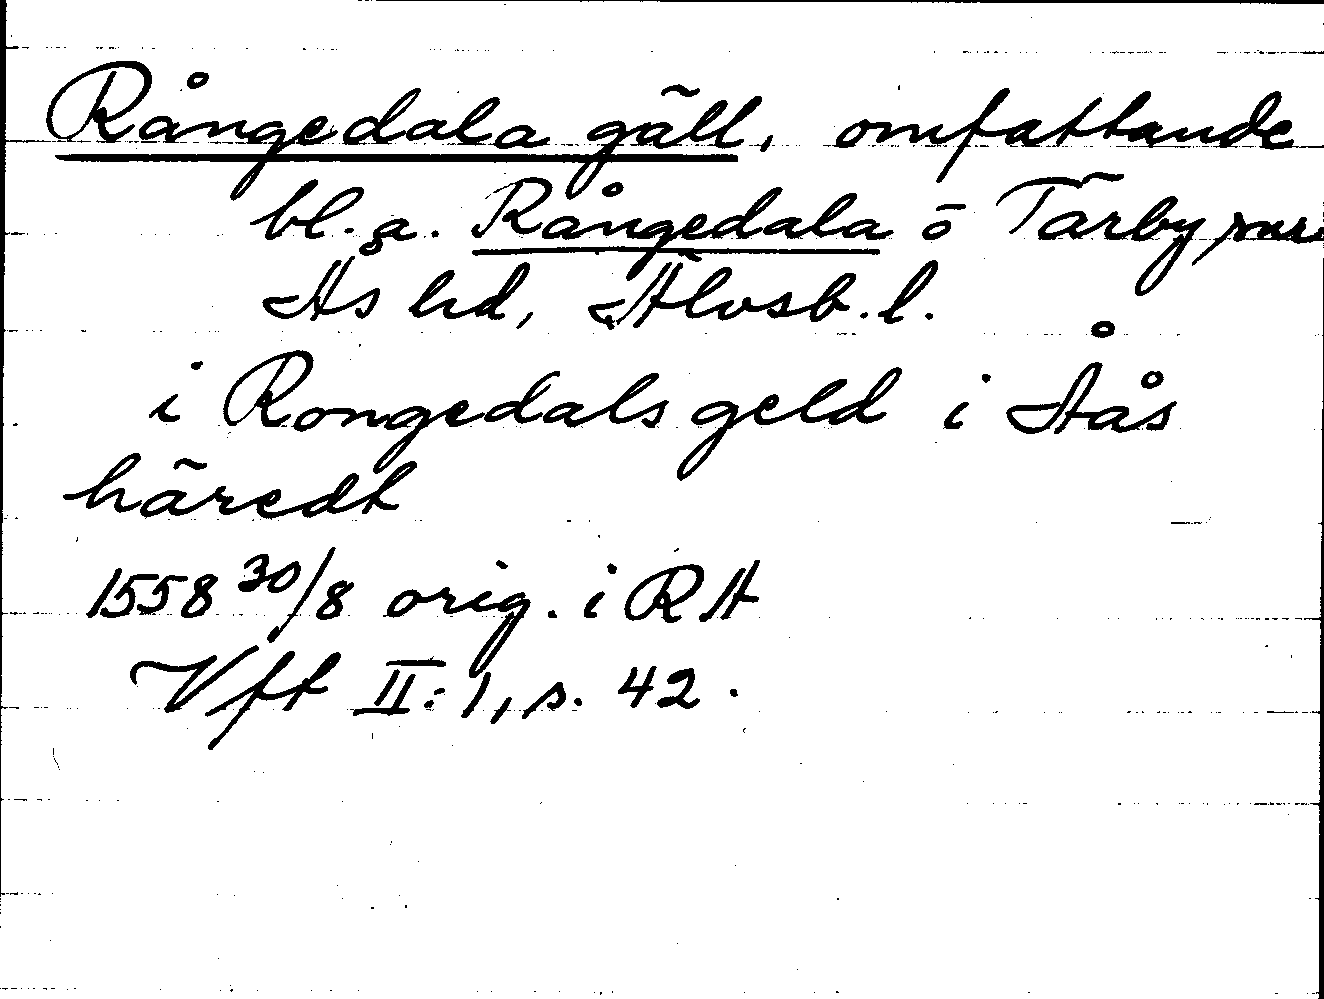 Rångedala gäll, omfattande
bl. a. Rångedala o Tärby
Ås hd, Älvsb. l.
i Rongedals geld i Åås
häredt
1558 30/8 orig. i RA
Vft II: 1, s. 42.